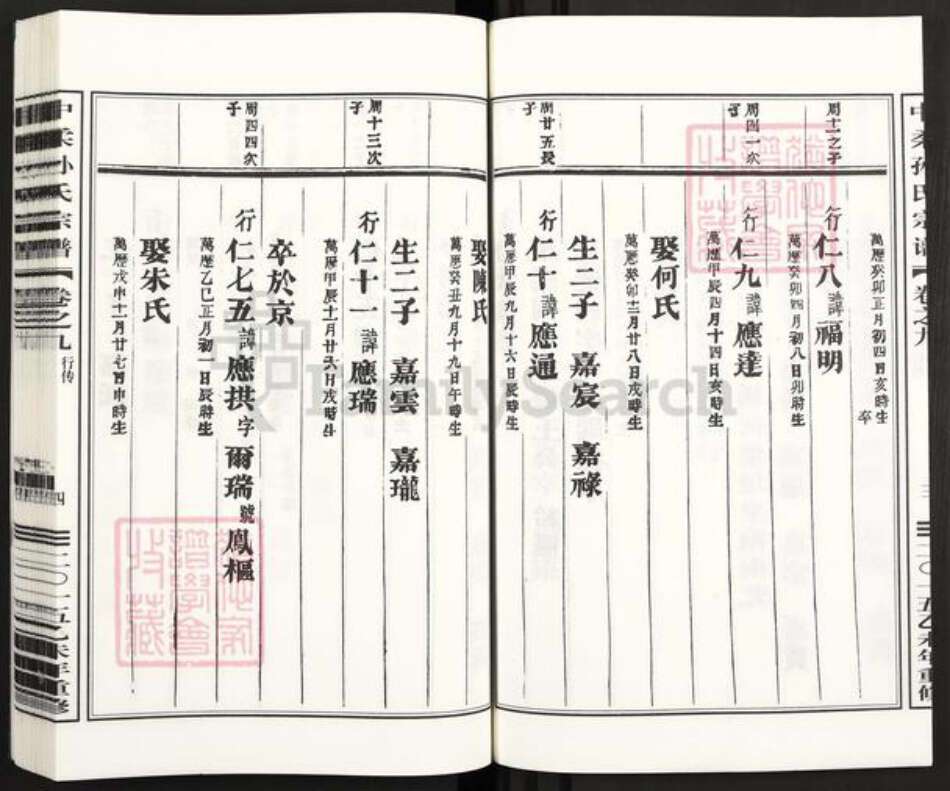 中柔孙氏宗谱【卷之九
三
二〇一五乙未年重修
萬歷癸卯正月初四日亥時生
卒
周十二之子
行仁八諱福明
萬歷癸卯四月初八日卯時生
周四一次子
行仁九諱應達
萬歷甲辰四月十四日亥時生
娶何氏
萬歷癸卯十二月廿八日戌時生
生二子 嘉宸 嘉祿
周廿五長子
行仁十諱應通
萬歷甲辰九月十六日辰時生
娶陳氏
萬歷癸丑九月十九日午時生
生二子 嘉雲 嘉瓏
周十三次子
行仁十一諱應瑞
萬歷甲辰十一月廿六日戌時生
卒於京
周四四次子
行仁七五諱應拱字爾瑞號鳳樞
萬歷乙巳正月初一日辰時生
娶朱氏
萬歷戊申十一月廿七日申時生
中柔孙氏宗譜【卷之九 行传
四
二〇一五乙未年重修
FamilySearch